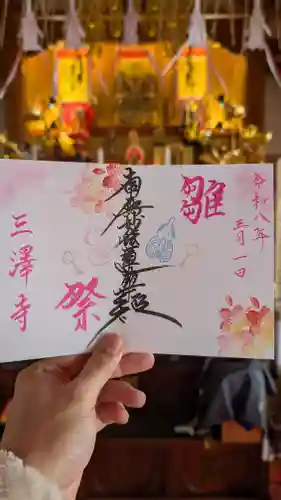 令和八年
三月一日
雛
南無妙法蓮華経
祭
三澤寺